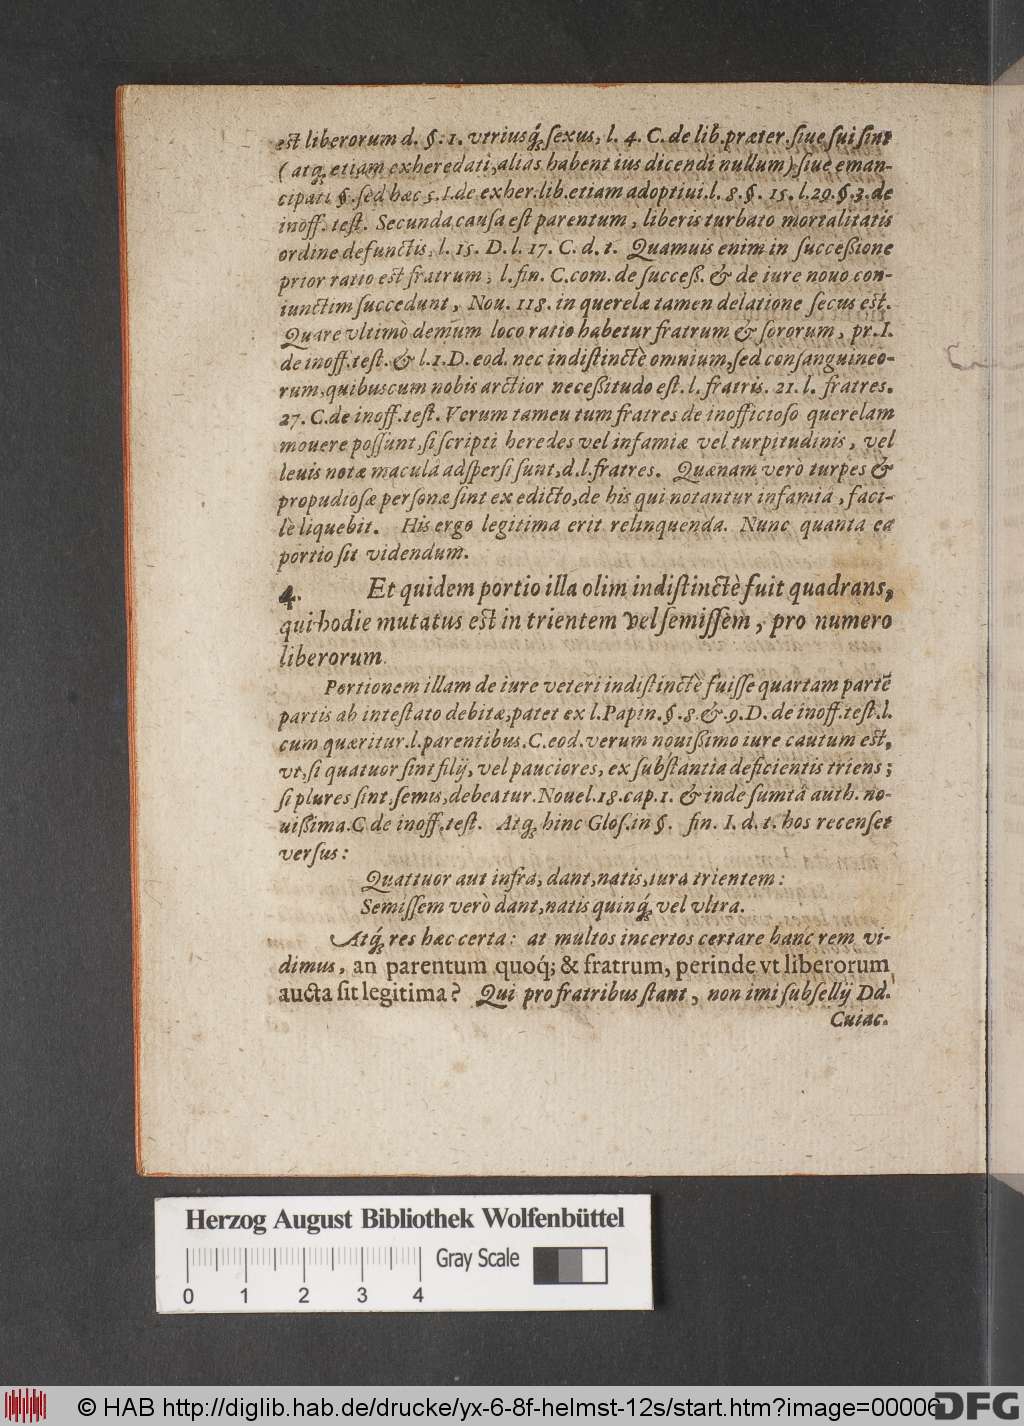 est liberorum d. §. 1. vtriusq́; sexus, l. 4. C. de lib. præter. siue sui sint
(atq; etiam exheredati, alias habent ius dicendi nullum) siue eman-
cipati §. sed hæc 5. I. de exher. lib. etiam adoptiui. l. 8. §. 15. l. 29. §. 3. de
inoff. test. Secunda causa est parentum, liberis turbato mortalitatis
ordine defunctis, l. 15. D. l. 17. C. d. t. Quamuis enim in successione
prior ratio est fratrum, l. fin. C. com. de success. & de iure nouo con-
iunctim succedunt, Nou. 118. in querelæ tamen delatione secus est.
Quare vltimò demum loco ratio habetur fratrum & sororum, pr. I.
de inoff. test. & l. 1. D. eod. nec indistinctè omnium, sed consanguineo-
rum, quibuscum nobis arctior necessitudo est. l. fratris. 21. l. fratres.
27. C. de inoff. test. Verum tameu tum fratres de inofficioso querelam
mouere possunt, si scripti heredes vel infamiæ vel turpitudinis, vel
leuis notæ maculâ adspersi sunt, d. l. fratres. Quænam verò turpes &
propudiosæ personæ sint ex edicto, de his qui notantur infamia, faci-
lè liquebit. His ergo legitima erit relinquenda. Nunc quanta ea
portio sit videndum.
4. Et quidem portio illa olim indistinctè fuit quadrans,
qui hodie mutatus est in trientem vel semissem, pro numero
liberorum.
Portionem illam de iure veteri indistinctè fuisse quartam partē
partis ab intestato debitæ, patet ex l. Papin. §. 8. & 9. D. de inoff. test. l.
cum quæritur. l. parentibus. C. eod. verum nouissimo iure cautum est,
vt, si quatuor sint filij, vel pauciores, ex substantia deficientis triens;
si plures sint, semis, debeatur. Nouel. 18. cap. 1. & inde sumtâ auth. no-
uissima. C de inoff. test. Atq; hinc Glos. in §. fin. I. d. t. hos recenset
versus:
Quattuor aut infra, dant, natis, iura trientem:
Semissem verò dant, natis quinq́; vel vltra.
Atq́; res hæc certa: at multos incertos certare hanc rem vi-
dimus, an parentum quoq́; & fratrum, perinde vt liberorum
aucta sit legitima? Qui pro fratribus stant, non imi subsellij Dd.
Cuiac.
Herzog August Bibliothek Wolfenbüttel
Gray Scale
0 1 2 3 4
© HAB http://diglib.hab.de/drucke/yx-6-8f-helmst-12s/start.htm?image=00006
DFG